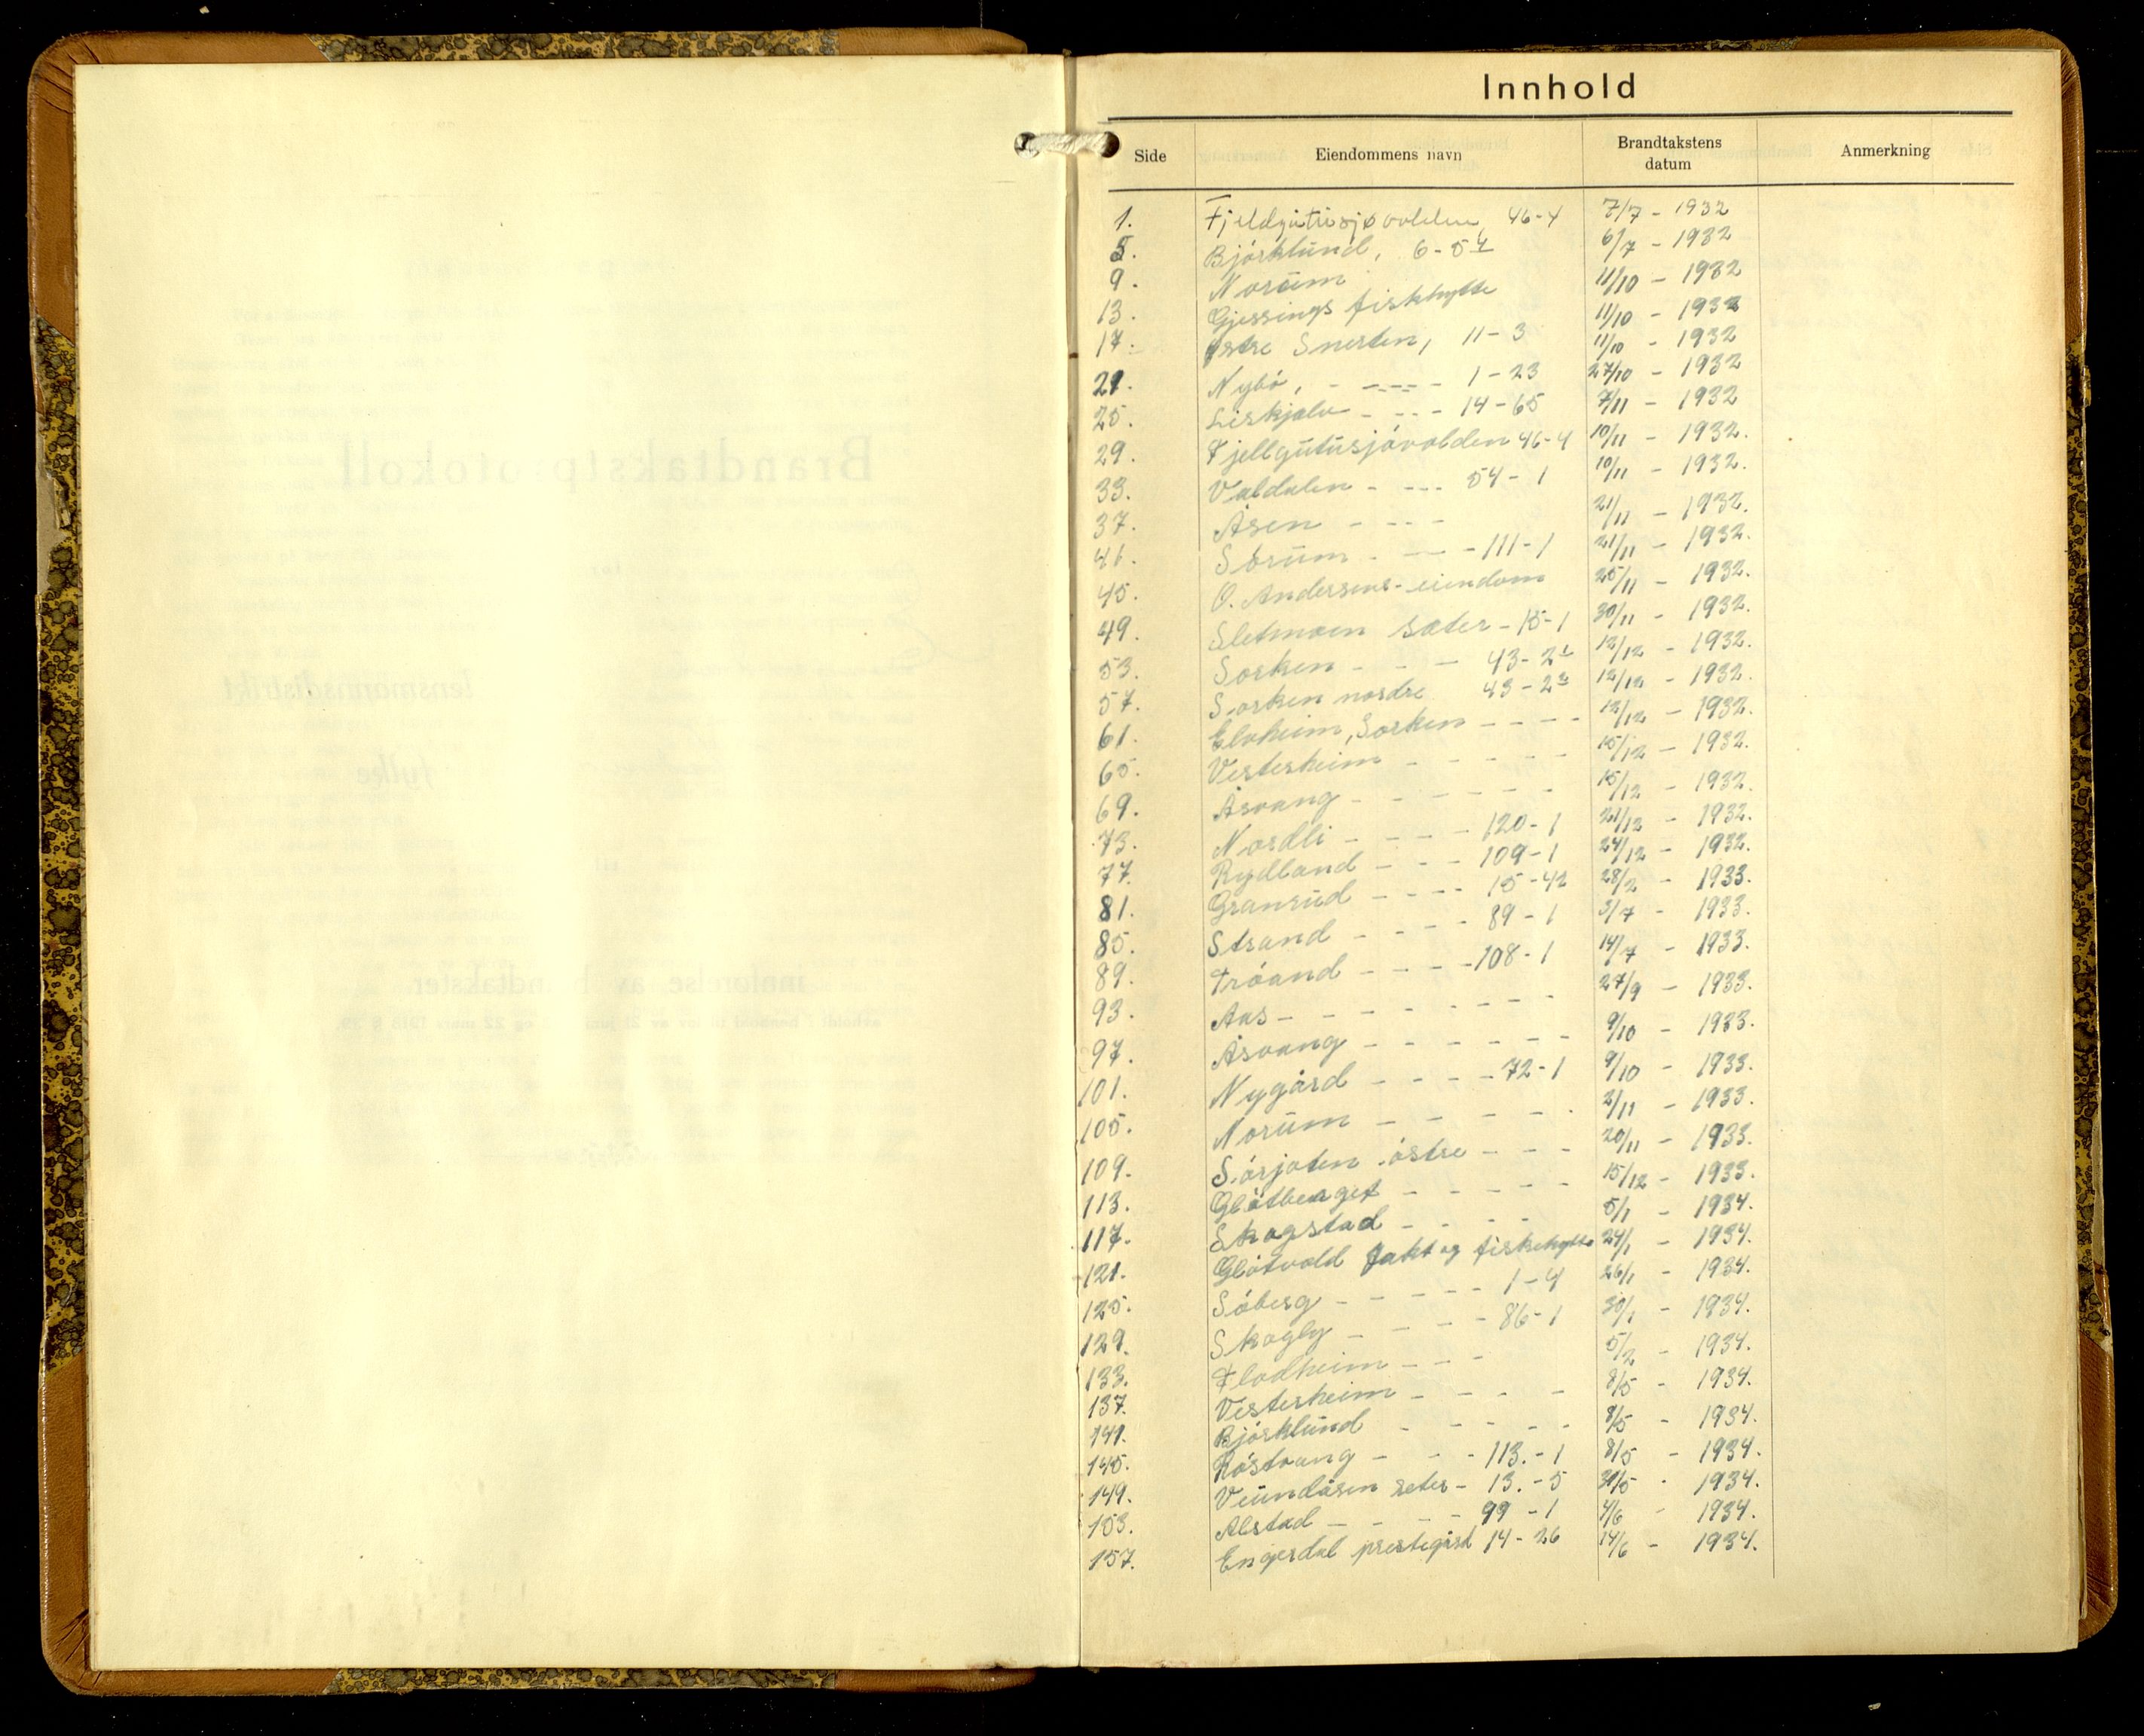 Innhold
Side Eiendommens navn Brandtakstens datum Anmerkning
1. Fjeldgutusjøvolden 46-4 7/7 - 1932
5. Bjórklund, 6-54 6/7 - 1932
9. Norum 11/10 - 1932
13. Gjessings fiskhytte 11/10 - 1932
17. Østre Snerten, 11-3 11/10 - 1932
21. Nybó, - ---- 1-23 27/10 - 1932
25. Liskjalv - --- 14-65 7/11 - 1932
29. Fjellgutusjóvolden 46-4 10/11 - 1932.
33. Valdalen - --- 54-1 10/11 - 1932.
37. Åsen - --- 21/11 - 1932.
41. Sórum - --- 111-1 21/11 - 1932.
45. O. Andersens eiendom 25/11 - 1932.
49. Sletmoen sæter - 15-1 30/11 - 1932.
53. Sorken - - - 43-2 12/12 - 1932.
57. Sorken nordre 43-2 12/12 - 1932.
61. Elvheim, Sorken - - - - 12/12 - 1932.
65. Vesterheim - - - - - 15/12 - 1932.
69. Åsvang - - - - - - 15/12 - 1932.
73. Nordli - - - - 120-1 21/12 - 1932.
77. Rydland - - - 109-1 24/12 - 1932.
81. Granrud - - - - 15-42 28/2 - 1933.
85. Strand - - - - 89-1 3/7 - 1933.
89. Tróand - - - - 108-1 14/7 - 1933.
93. Aas - - - - - - - 27/9 - 1933.
97. Åsvang - - - - - - 9/10 - 1933.
101. Nygård - - - - 72-1 9/10 - 1933.
105. Norum - - - - - 2/11 - 1933.
109. Sórjoten óstre - - - 20/11 - 1933.
113. Glótberget - - - - - 15/12 - 1933.
117. Skogstad - - - - 5/1 - 1934.
121. Glótvold Jakt og fiskehytte 24/1 - 1934.
125. Sóberg - - - - - 1-4 26/1 - 1934.
129. Skogly - - - - 86-1 30/1 - 1934.
133. Flodheim - - - 5/2 - 1934.
137. Vesterheim - - - - 8/5 - 1934.
141. Bjórklund - - - - 8/5 - 1934.
145. Róstvang - - - 113.-1 8/5 - 1934.
149. Veundåsen seter - 13.-5 31/5 - 1934.
153. Alstad - - - - 99-1 4/6 - 1934.
157. Engerdal prestegård 14-26 14/6 - 1934.